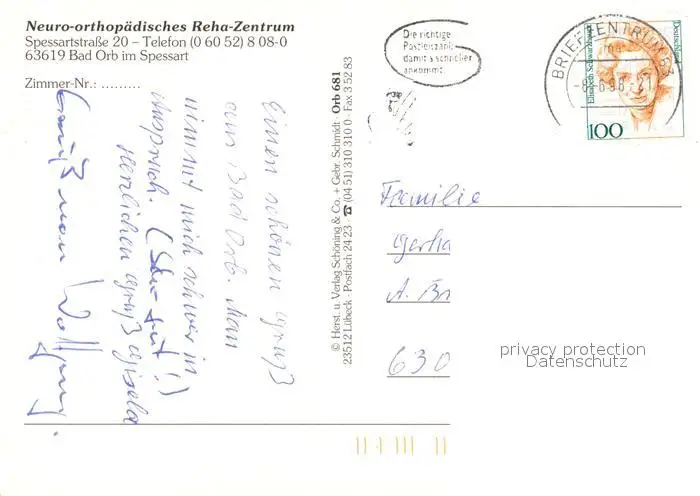 Neuro-orthopädisches Reha-Zentrum
Spessartstraße 20 – Telefon (0 60 52) 8 08-0
63619 Bad Orb im Spessart
Zimmer-Nr.: .........
Einen schönen Gruß
aus Bad Orb. Man
nimmt mich schwer in
Anspruch. (Sehr gut!)
Herzlichen Gruß Gisela
Gruß von Wolfgang
© Herst. u. Verlag Schöning & Co. + Gebr. Schmidt · Orb 681
23512 Lübeck · Postfach 24 23 · ☎ (04 51) 310 310 0 · Fax 3 52 83
Die richtige
Postleitzahl
damit's schneller
ankommt.
BRIEFZENTRUM 63
-8.6.98-21
Elisabeth Schwarzhaupt
Deutschland
100
Familie
Gerha
A. Br
630
privacy protection
Datenschutz